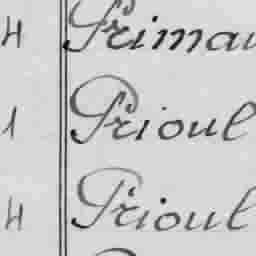 4 Primau
1 Prioul
4 Prioul